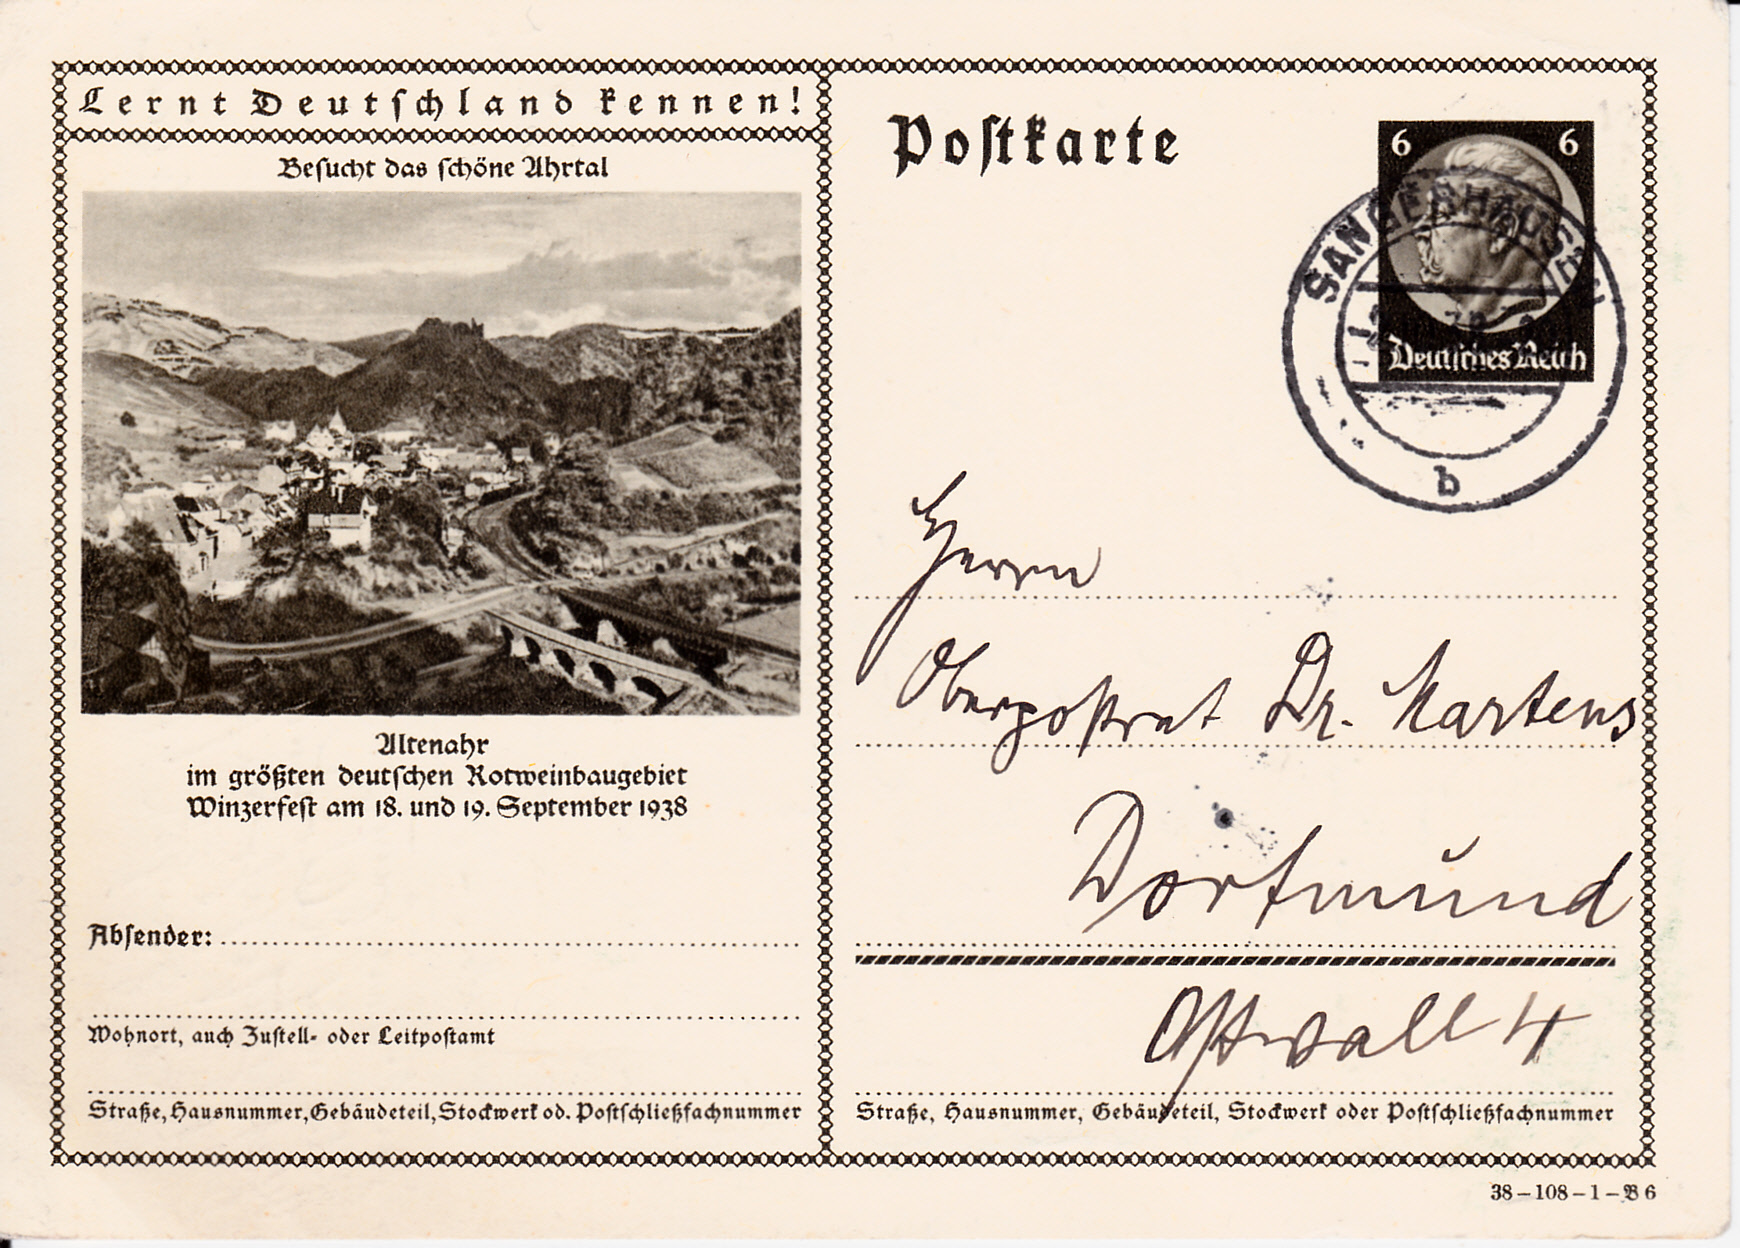 Lernt Deutschland kennen!
Besucht das schöne Ahrtal
Altenahr
im größten deutschen Rotweinbaugebiet
Winzerfest am 18. und 19. September 1938
Absender:
Wohnort, auch Zustell- oder Leitpostamt
Straße, Hausnummer, Gebäudeteil, Stockwerk od. Postschließfachnummer
Postkarte
6 6
Deutsches Reich
SANGERHAUSEN
b
Herrn
Oberpostrat Dr. Martens
Dortmund
Ostwall 4
Straße, Hausnummer, Gebäudeteil, Stockwerk oder Postschließfachnummer
38-108-1-B 6